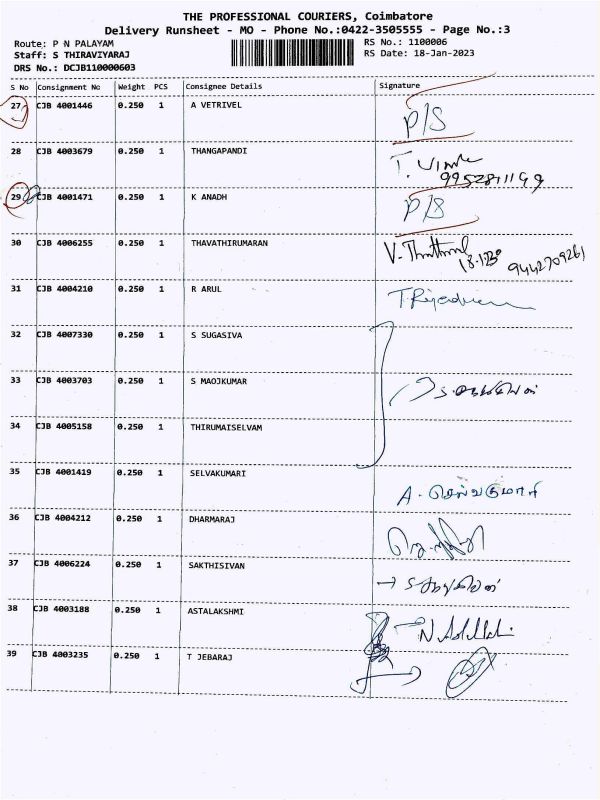 THE PROFESSIONAL COURIERS, Coimbatore
Delivery Runsheet - MO - Phone No.:0422-3505555 - Page No.:3
Route: P N PALAYAM
Staff: S THIRAVIYARAJ
DRS No.: DCJB110000603
RS No.: 1100006
RS Date: 18-Jan-2023
S No Consignment No Weight PCS Consignee Details Signature
27 CJB 4001446 0.250 1 A VETRIVEL P/S
28 CJB 4003679 0.250 1 THANGAPANDI T.
29 CJB 4001471 0.250 1 K ANADH P/S
30 CJB 4006255 0.250 1 THAVATHIRUMARAN V.
9442709261
31 CJB 4004210 0.250 1 R ARUL
32 CJB 4007330 0.250 1 S SUGASIVA
33 CJB 4003703 0.250 1 S MAOJKUMAR
34 CJB 4005158 0.250 1 THIRUMAISELVAM
35 CJB 4001419 0.250 1 SELVAKUMARI A. செல்வகுமாரி
36 CJB 4004212 0.250 1 DHARMARAJ
37 CJB 4006224 0.250 1 SAKTHISIVAN
38 CJB 4003188 0.250 1 ASTALAKSHMI
39 CJB 4003235 0.250 1 T JEBARAJ